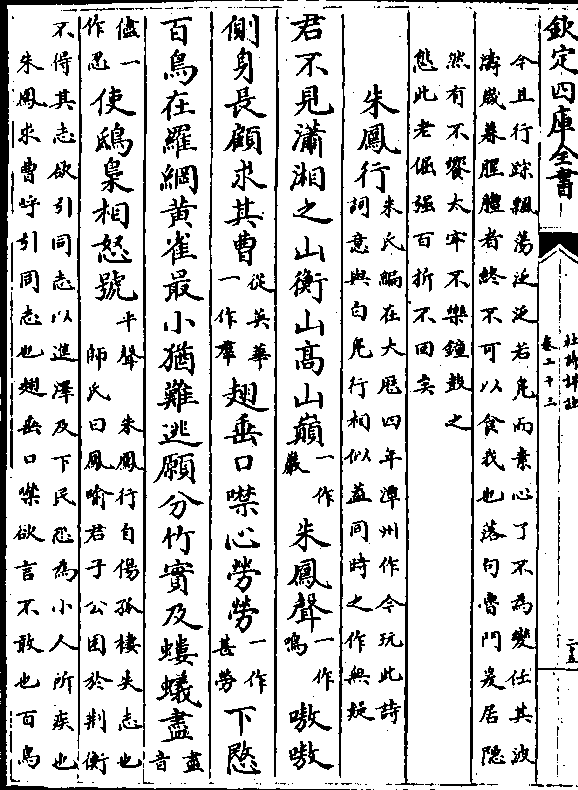 欽定四庫全書
杜詩詳註
卷二十三
今且行踪飄蕩泛泛若鳧而素心了不為變任其波
濤歲暮腥膻者終不可以食我也落句魯門爰居隱
然有不饗太牢不樂鐘鼓之
態此老倔强百折不回矣
朱鳳行朱氏編在大厯四年潭州作今玩此詩詞意與白鳧行相似葢同時之作無疑
君不見瀟湘之山衡山髙山巔一作巖朱鳳聲一作鳴嗷嗷
側身長顧求其曹從英華一作羣翅垂口噤心勞勞一作甚勞下愍
百鳥在羅網黄雀最小猶難逃願分竹實及螻蟻盡盡音
儘一作忍使鴟梟相怒號平聲 朱鳳行自傷孤棲失志也師氏曰鳳喻君子公困於荆衡
不得其志欲引同志以進澤及下民恐為小人所疾也
朱鳳求曹呼引同志也翅垂口噤欲言不敢也百鳥